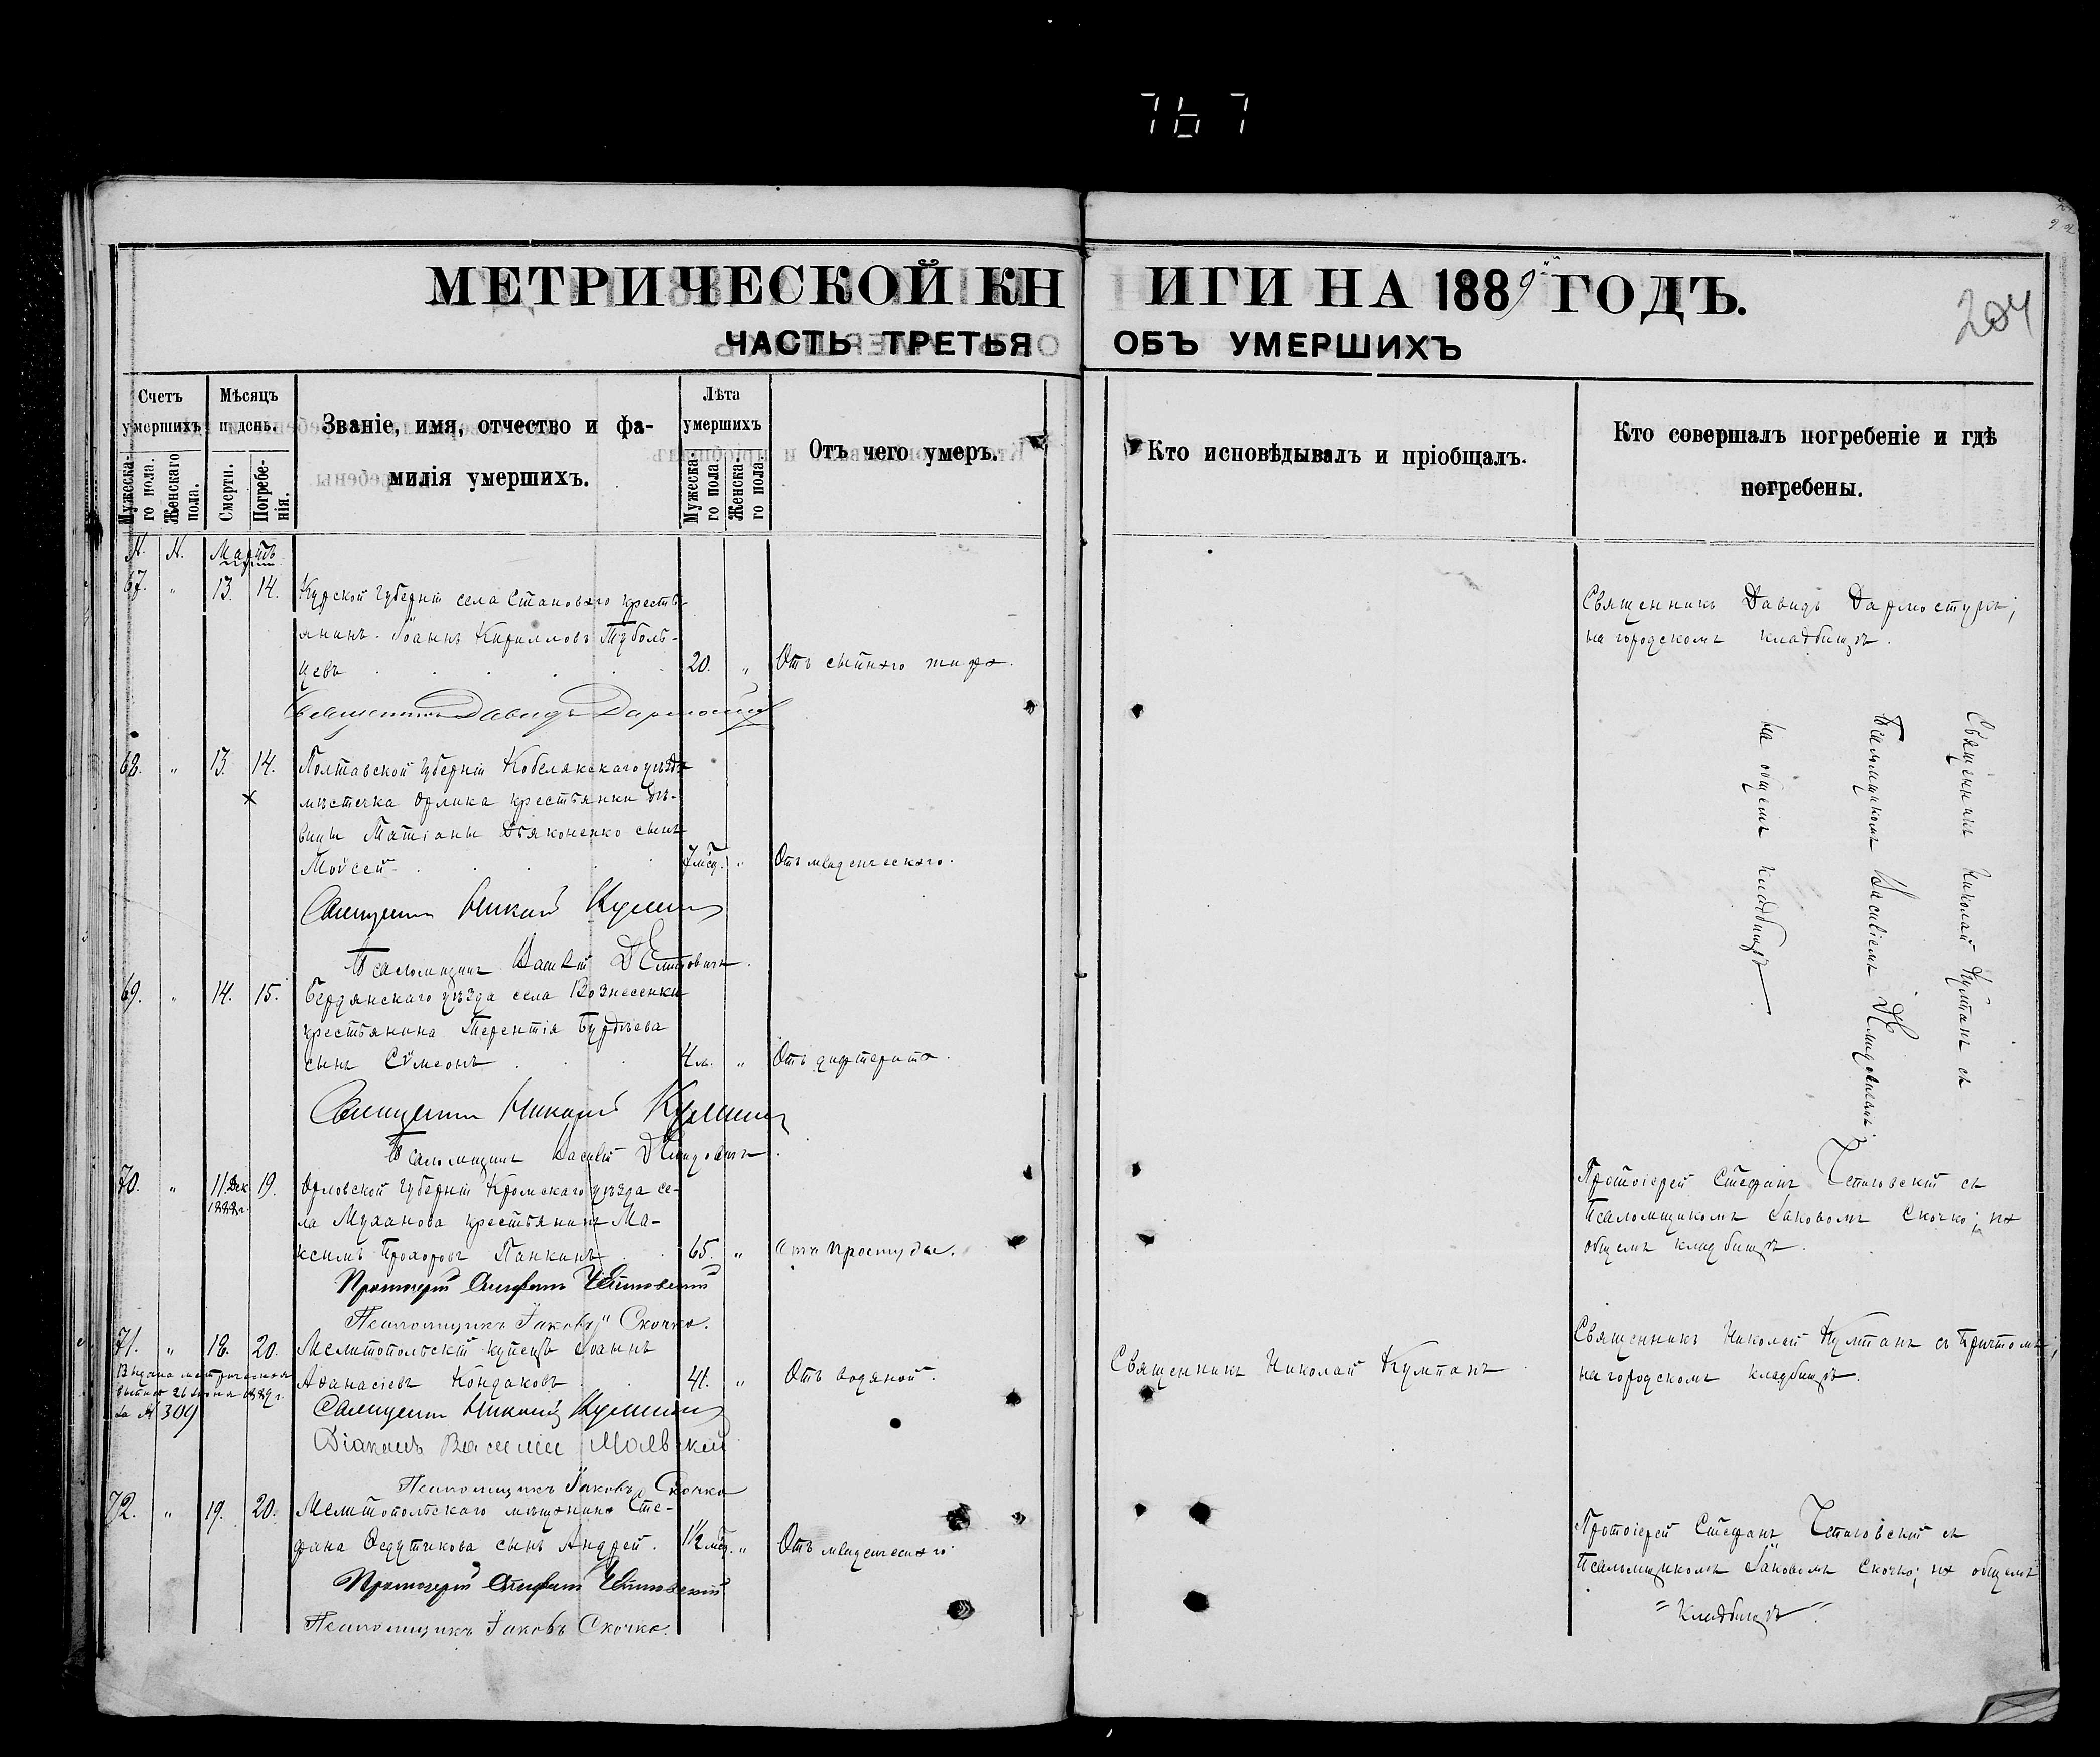 767
МЕТРИЧЕСКОЙ КНИГИ НА 1889й ГОДЪ.
204
ЧАСТЬ ТРЕТЬЯ ОБЪ УМЕРШИХЪ
Счетъ умершихъ
Мужескаго пола.
Женскаго пола.
Мѣсяцъ и день.
Смерти.
Погребенія.
Званіе, имя, отчество и фамилія умершихъ.
Лѣта умершихъ
Мужескаго пола.
Женскаго пола.
Отъ чего умеръ.
Кто исповѣдывалъ и пріобщалъ.
Кто совершалъ погребеніе и гдѣ погребены.
N. N. Мартъ
67. " 13. 14. Курской губерніи села Становаго кресть-
янинъ Іоаннъ Кирилловъ Туболь-
цевъ 20. " Отъ сыпнаго тифа.
Священникъ Давидъ
Священникъ Давидъ
на городскомъ кладбищѣ.
68. " 13. 14. Полтавской губерніи Кобелякскаго уѣзда
мѣстечка Орлика крестьянки дѣ-
вицы Татіаны Дьяконенко сынъ
Мойсей 7 мѣс. " Отъ младенческаго.
Священникъ Николай
Псаломщикъ Василій
69. " 14. 15. Бердянскаго уѣзда села Вознесенки
крестьянина Терентія
сынъ Сѵмеонъ 4 м. " Отъ дифтерита.
Священникъ Николай
Псаломщикъ Василій
Священникъ Николай Кулманъ съ
Псаломщикомъ Василіемъ
на общемъ кладбищѣ
70. " 11. Дек. 1888 г. 19. Орловской губерніи Кромскаго уѣзда се-
ла Муханова крестьянинъ Ма-
ксимъ Прохоровъ Панкинъ 65. " Отъ простуды.
Протоіерей Стефанъ
Псаломщикъ Іаковъ Скочко.
Протоіерей Стефанъ съ
Псаломщикомъ Іаковомъ Скочко; на
общемъ кладбищѣ.
71. " 18. 20. Мелитопольскій купецъ Іоаннъ
Аѳанасіевъ Кондаковъ 41. " Отъ водяной.
Выдана метрическая
выпись 26 1889 г.
за № 309
Священникъ Николай
Діаконъ Василій
Псаломщикъ Іаковъ Скочко
Священникъ Николай Кулманъ
Священникъ Николай Кулманъ съ причтомъ;
на городскомъ кладбищѣ.
72. " 19. 20. Мелитопольскаго мѣщанина Сте-
фана сынъ Андрей. 1½ мѣс. " Отъ младенческаго
Протоіерей Стефанъ
Псаломщикъ Іаковъ Скочко.
Протоіерей Стефанъ съ
Псаломщикомъ Іаковомъ Скочко; на общемъ
кладбищѣ